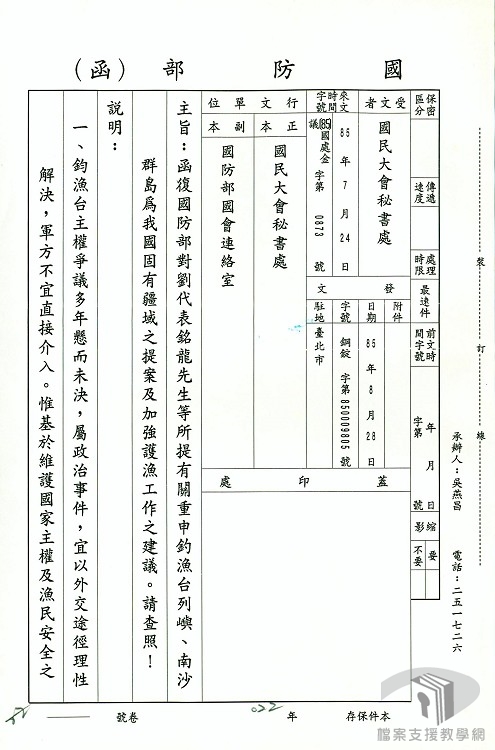 國防部（函）
保密區分
傳遞速度
處理時限
最速件
前文時間字號
年 月 日
字第 號
縮影
要
不要
受文者
國民大會秘書處
來文時間字號
85年7月24日
(85)國處金議字第 0873 號
行文單位
正本
國民大會秘書處
副本
國防部國會連絡室
發文
附件
日期
85年8月28日
字號
銅錠字第850009805號
駐地
臺北市
蓋印處
主旨：函復國防部對劉代表銘龍先生等所提有關重申釣漁台列嶼、南沙
群島為我國固有疆域之提案及加強護漁工作之建議。請查照！
說明：
一、釣漁台主權爭議多年懸而未決，屬政治事件，宜以外交途徑理性
解決，軍方不宜直接介入。惟基於維護國家主權及漁民安全之
裝訂線
承辦人：吳燕昌 電話：二五一七二六
本件保存 年 022 卷號
檔案支援教學網